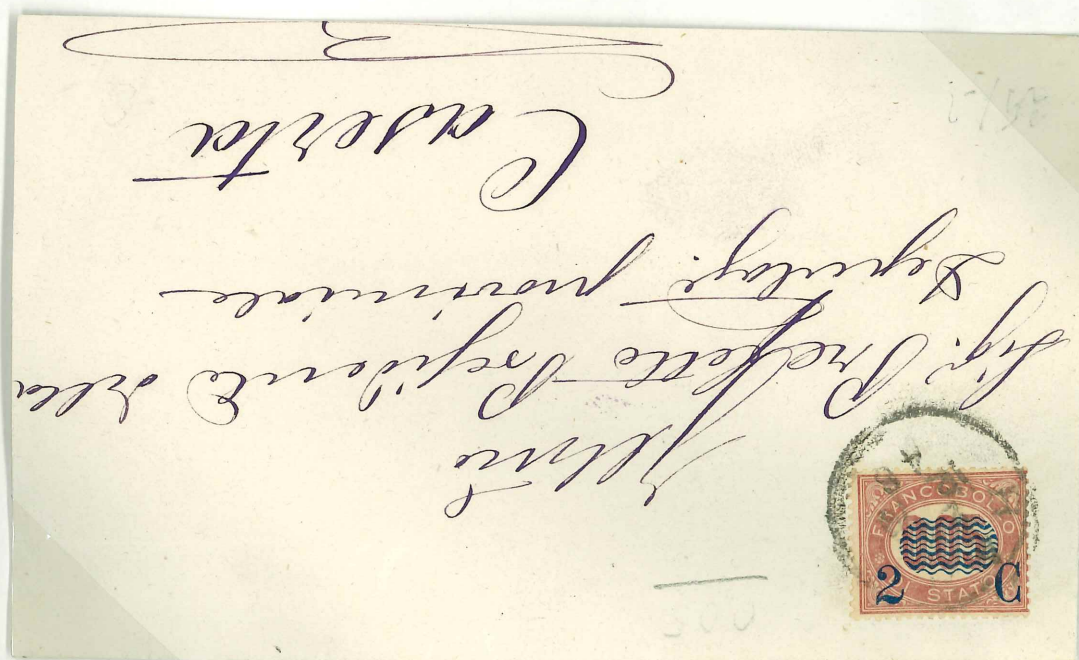 Illmo
Sig. Prefetto Presidente della
Deputaz. provinciale
Caserta
FRANCOBOLLO
2 C
STATO